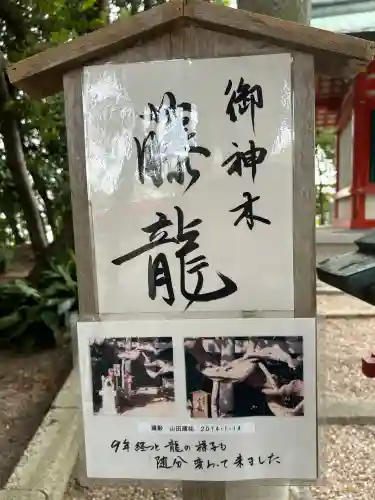 御神木
藤龍
撮影 山田陽祐 2014·1·14
9年経つと龍の様子も
随分変わって来ました